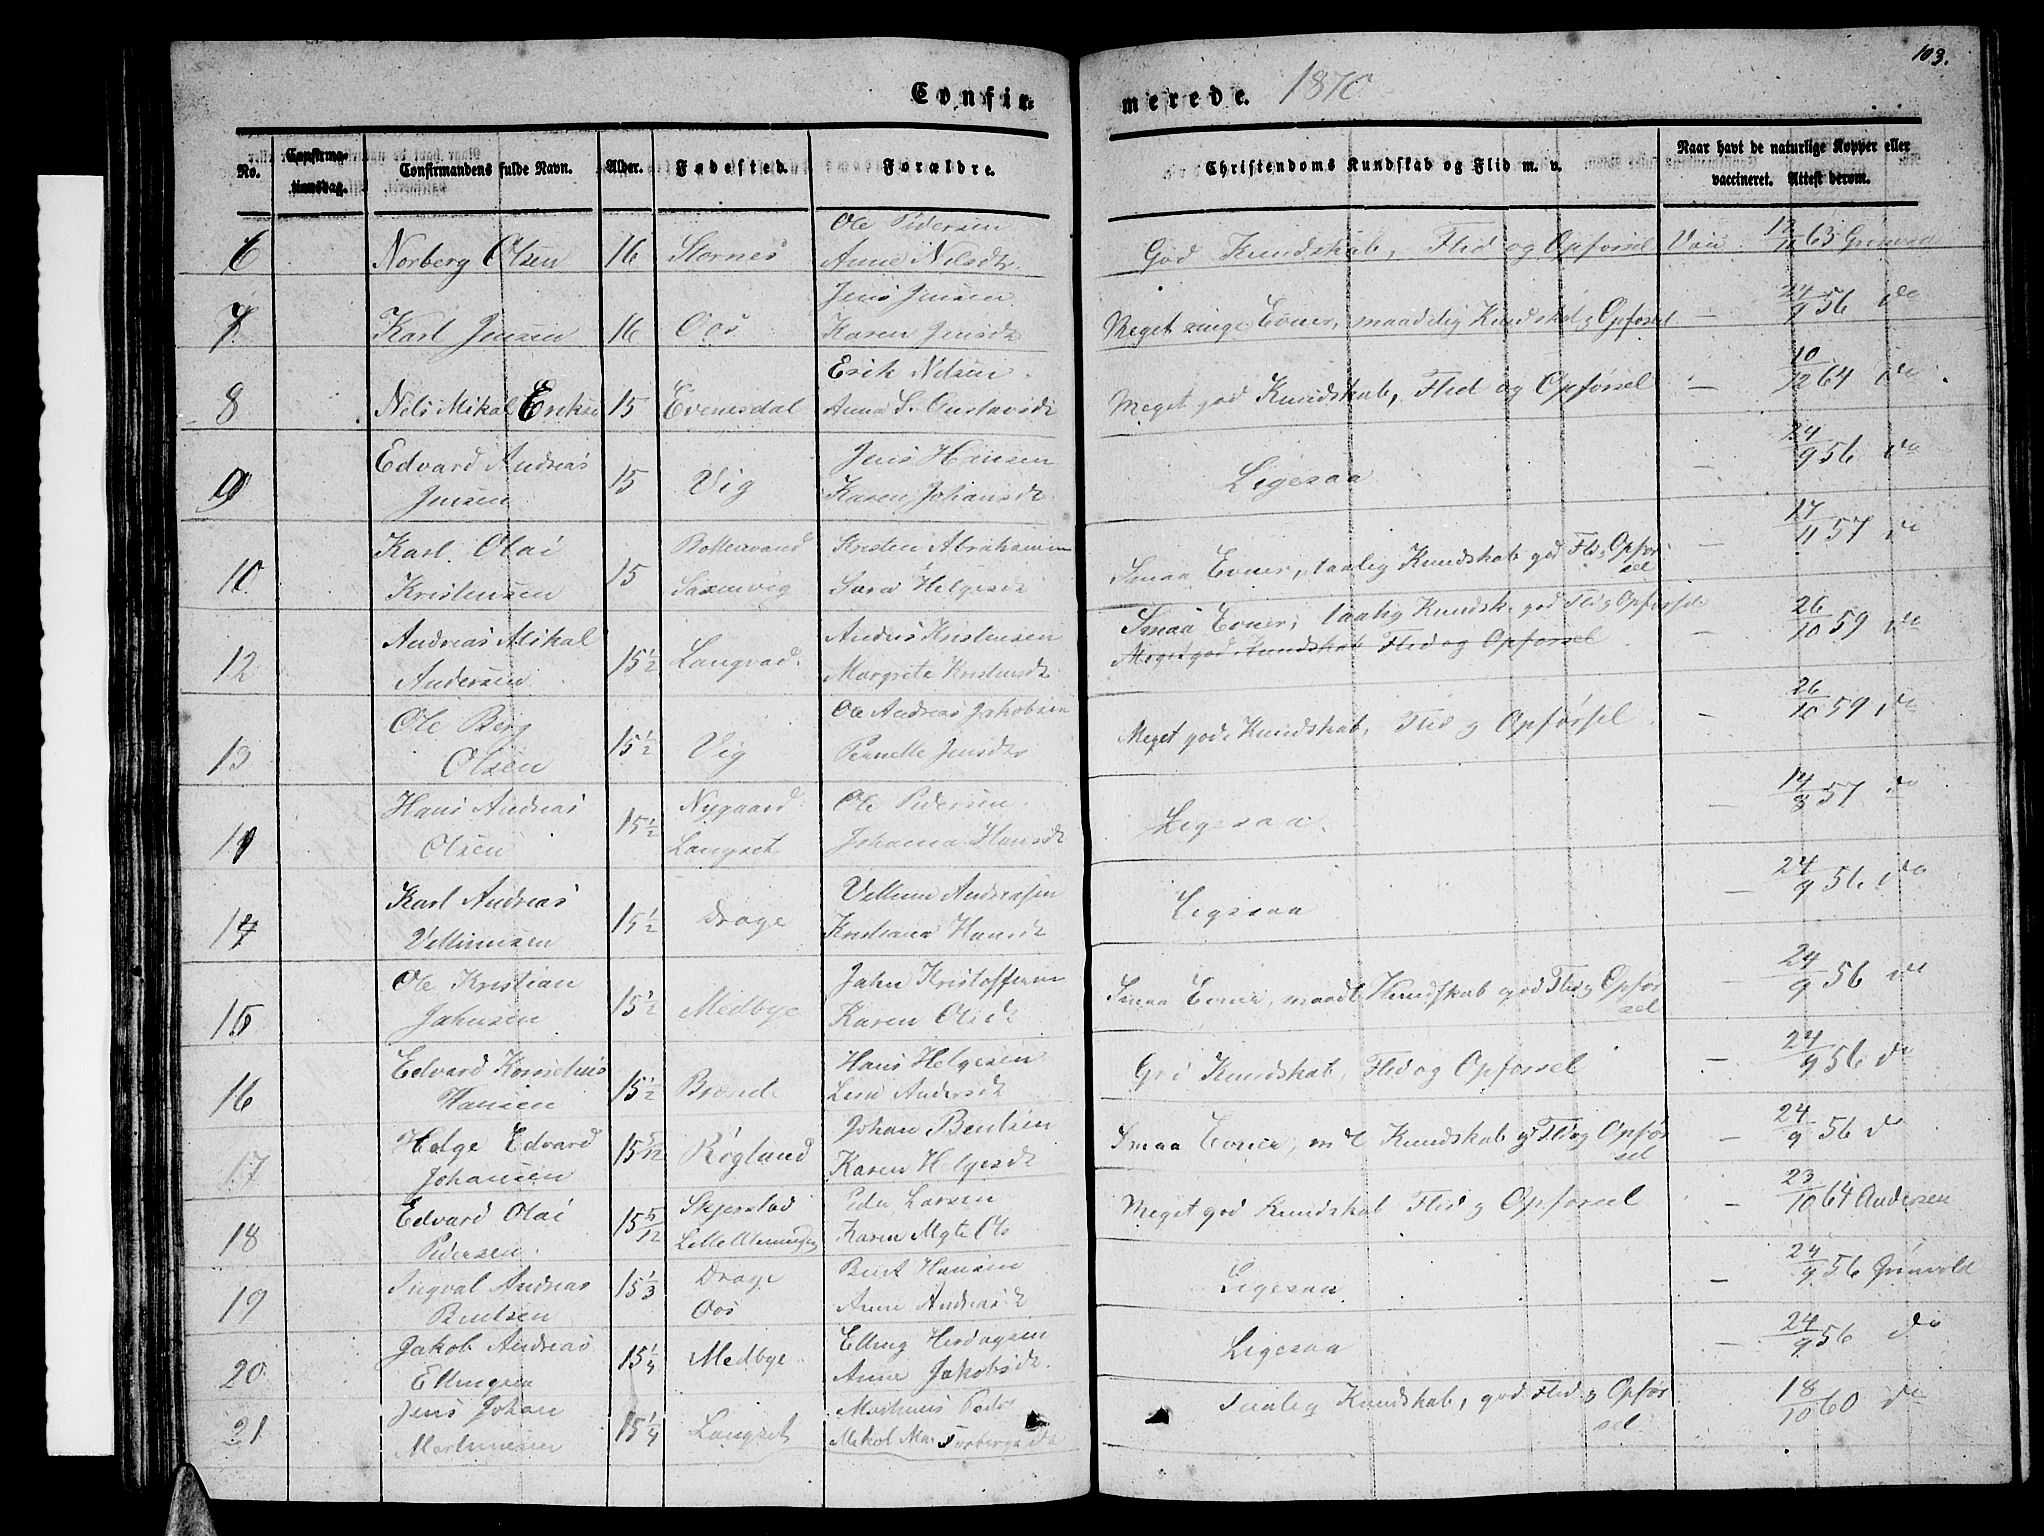 103.
Confir-
merede. 1870
No.
Confirma-
tionsdag.
Confirmandens fulde Navn.
Alder.
Fødested.
Forældre.
Christendoms Kundskab og Flid m. v.
Naar havt de naturlige Kopper eller
vaccineret. Attest derom.
6 Norberg Olsen 16 Stornes
Ole Pedersen
Anne Nilsdtr.
God Kundskab, Flid og Opførsel
63
7 Karl Jensen 16 Oos
Jens Jensen
Karen Jensdtr
Meget ringe Evner, maadelig Kundskab og Opførsel
24/9 56 do
8 Nils Mikal Eriksen 15 Evenesdal
Erik Nilsen
Anna S. Gustavsdtr
Meget god Kundskab, Flid og Opførsel
10/12 64 do
9 Edvard Andreas
Jensen
15 Vig
Jens Hansen
Karen Johansdtr.
Ligesaa
24/9 56 do
10 Karl Olai
Kristensen
15
Saxenvig
Kristen Abrahamsen
Sara Helgesdtr
Smaa Evner, taalig Kundskab god Flid og Opfør
sel
17/11 57 do
12 Andreas Mikal
Andersen
15½ Langvad.
Anders Kristensen
Margrete Kristensdtr
Smaa Evner, taalig Kundsk. god Flid og Opførsel
Meget god Kundskab Flid og Opførsel
26/10 59 do
13 Ole Berg
Olsen
15½ Vig
Ole Andreas Jakobsen
Pernelle Jensdtr
Meget god Kundskab, Flid og Opførsel
26/10 59 do
Hans Andreas
Olsen
15½
Nygaard
Langset
Ole Pedersen.
Johanna Hansdtr
Ligesaa.
14/8 57 do
14 Karl Andreas
Vellumsen
15½ Drage
Vellum Andreasen
Kristiana Hansdtr
Ligesaa
24/9 56 do
15 Ole Kristian
Jahnsen
15½ Medbye
Jahn Kristoffersen
Karen Olsdtr
Smaa Evner, maadl. Kundskab god Flid og Opfør
sel
24/9 56 do
16 Edvard Kornelius
Hansen
15½ Brænde
Hans Helgesen
Lena Andersdtr
God Kundskab, Flid og Opførsel
24/9 56 do
17 Helge Edvard
Johansen
15 5/12 Røgland
Johan Bentsen
Karen Helgesdtr
Smaa Evner, Kundskab Flid og Opfør
sel
24/9 56 do
18 Edvard Olai
Pedersen.
15 5/12
Skjerstad
Peder Larsen
Karen Mgte Ols
Meget god Kundskab Flid og Opførsel
23/10 64 Andersen
19 Ingval Andreas
Bentsen
15⅓
Drage
Oos
Bent Hansen
Anne Andreasdtr
Ligesaa
24/9 56 Grönvold
20 Jakob Andreas
Ellingsen
15¼ Medbye
Elling Herdagsen
Anne Jakobsdtr.
Ligesaa
24/9 56 do
21 Jens Johan
Martinusen
15¼ Langset
Martinus Peders
Taalig Kundskab, god Flid og Opfør
sel
18/10 60 do